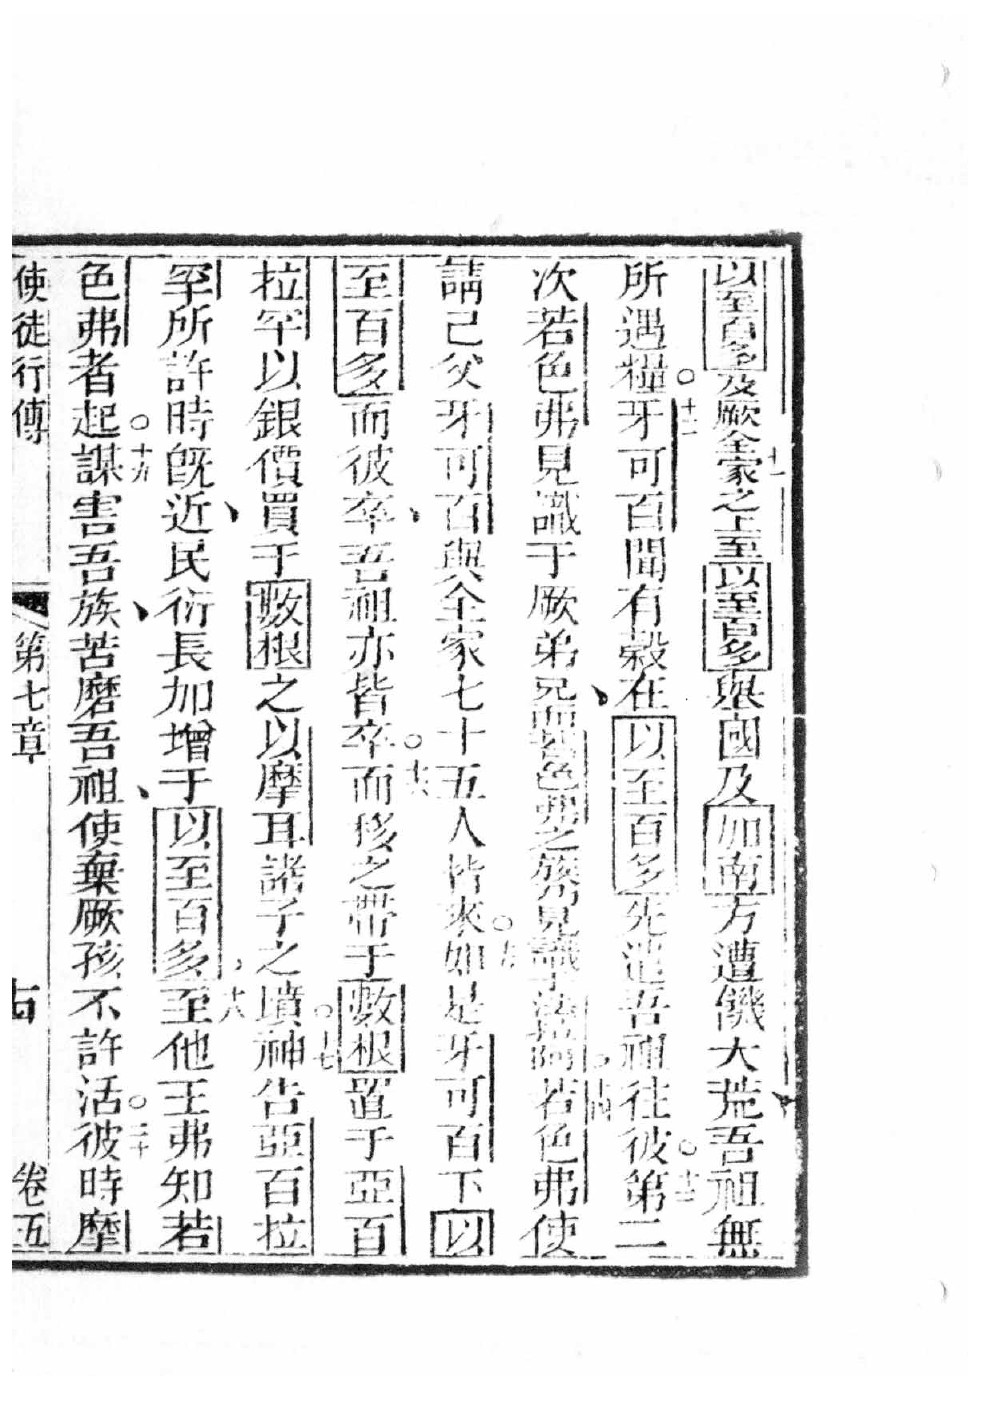 以至百多及厥全家之上至以至百多與國及加南方遭饑大荒吾祖無
所遇糧○十二牙可百聞有穀在以至百多先遣吾祖往彼○十三第二
次若色弗見識于厥弟兄而若色弗之族另見識于法拉阿若色弗使
請己父牙可百與全家七十五人皆來○十五如是牙可百下以
至百多而彼卒吾祖亦皆卒○十六而移之帶于數根置于亞百
拉罕以銀價買于數根之以摩耳諸子之墳○十七神告亞百拉
罕所許時既近民衍長加增于以至百多十八至他王弗知若
色弗者起○十九謀害吾族苦磨吾祖使棄厥孩不許活○二十彼時摩
使徒行傳 第七章 卷五